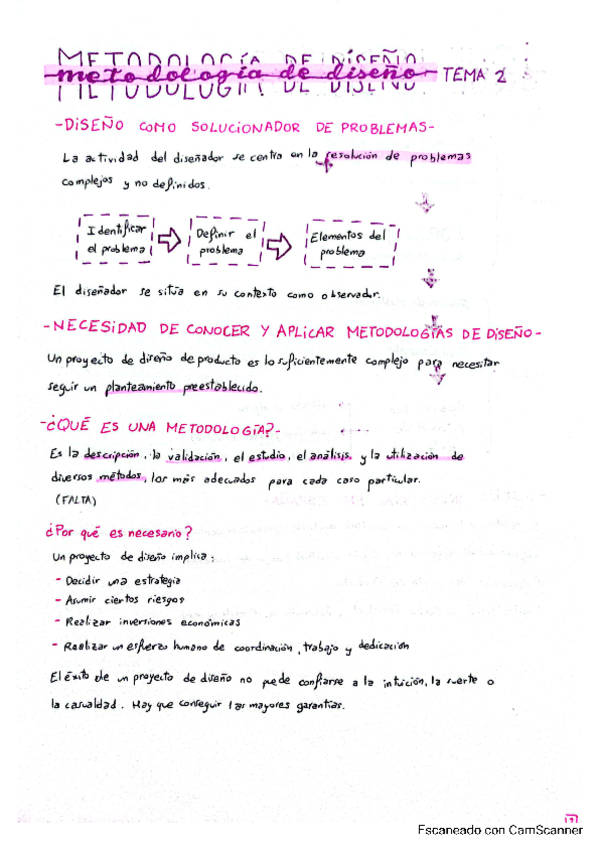 METODOLOGÍA DE DISEÑO
metodología de diseño TEMA 2
METODOLOGÍA DE DISEÑO
-DISEÑO COMO SOLUCIONADOR DE PROBLEMAS-
La actividad del diseñador se centra en la resolución de problemas
complejos y no definidos.
Identificar el problema
Definir el problema
Elementos del problema
El diseñador se sitúa en su contexto como observador.
-NECESIDAD DE CONOCER Y APLICAR METODOLOGÍAS DE DISEÑO-
Un proyecto de diseño de producto es lo suficientemente complejo para necesitar
seguir un planteamiento preestablecido.
-¿QUÉ ES UNA METODOLOGÍA?-
Es la descripción, la validación, el estudio, el análisis, y la utilización de
diversos métodos, los más adecuados para cada caso particular.
(FALTA)
¿Por qué es necesario?
Un proyecto de diseño implica:
- Decidir una estrategia
- Asumir ciertos riesgos
- Realizar inversiones económicas
- Realizar un esfuerzo humano de coordinación, trabajo y dedicación
El éxito de un proyecto de diseño no puede confiarse a la intuición, la suerte o
la casualdad. Hay que conseguir las mayores garantías.
Escaneado con CamScanner